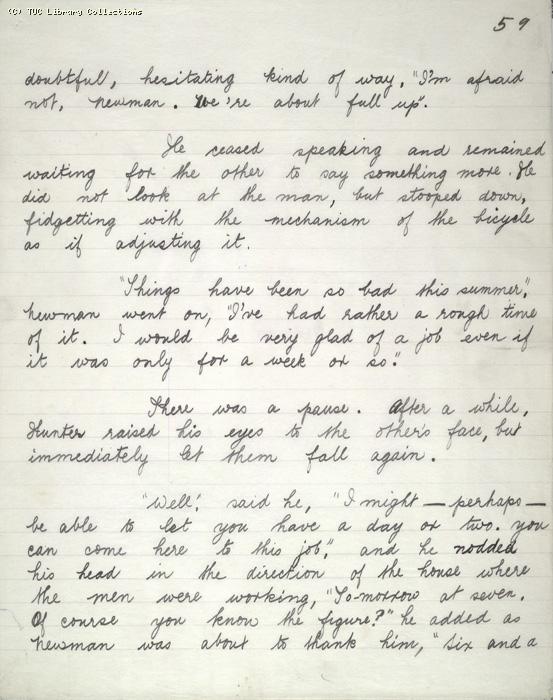 (C) TUC Library Collections
59
doubtful, hesitating kind of way. "I'm afraid
not, newman. We're about full up".
He ceased speaking and remained
waiting for the other to say something more. He
did not look at the man, but stooped down,
fidgetting with the mechanism of the bicycle
as if adjusting it.
"Things have been so bad this summer",
newman went on, "I've had rather a rough time
of it. I would be very glad of a job even if
it was only for a week or so."
There was a pause. After a while,
Hunter raised his eyes to the other's face, but
immediately let them fall again.
"Well", said he, "I might — perhaps —
be able to let you have a day or two. you
can come here to this job", and he nodded
his head in the direction of the house where
the men were working, "To-morrow at seven.
Of course you know the figure?" he added as
newman was about to thank him, "six and a